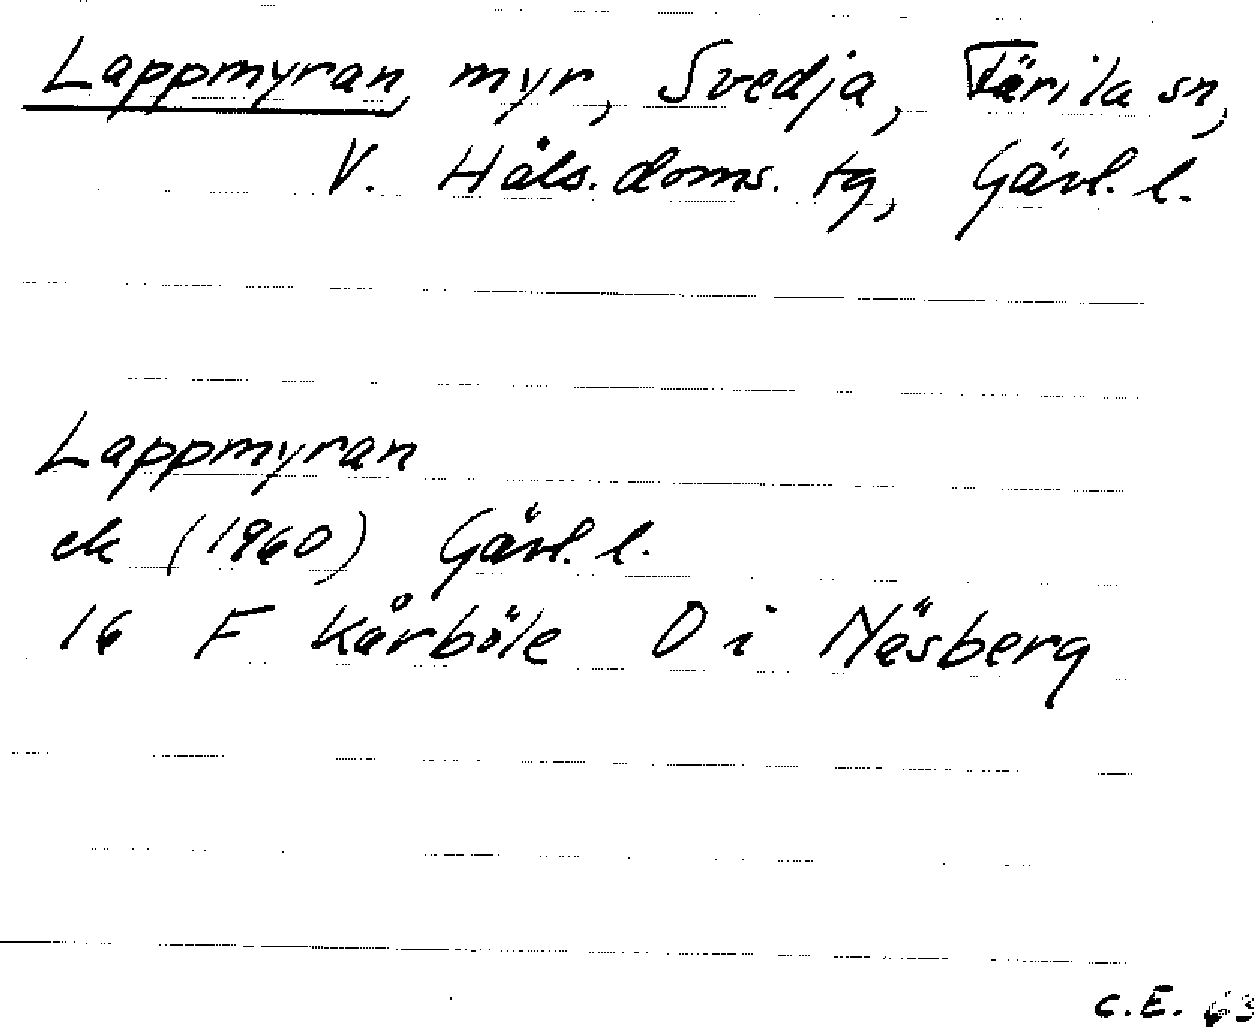 Lappmyran, myr, Svedja, Färila sn,
V. Häls. doms. tg, Gävl. l.
Lappmyran
ek (1960) Gävl. l.
16 F Kårböle O i Näsberg
C.E. 63